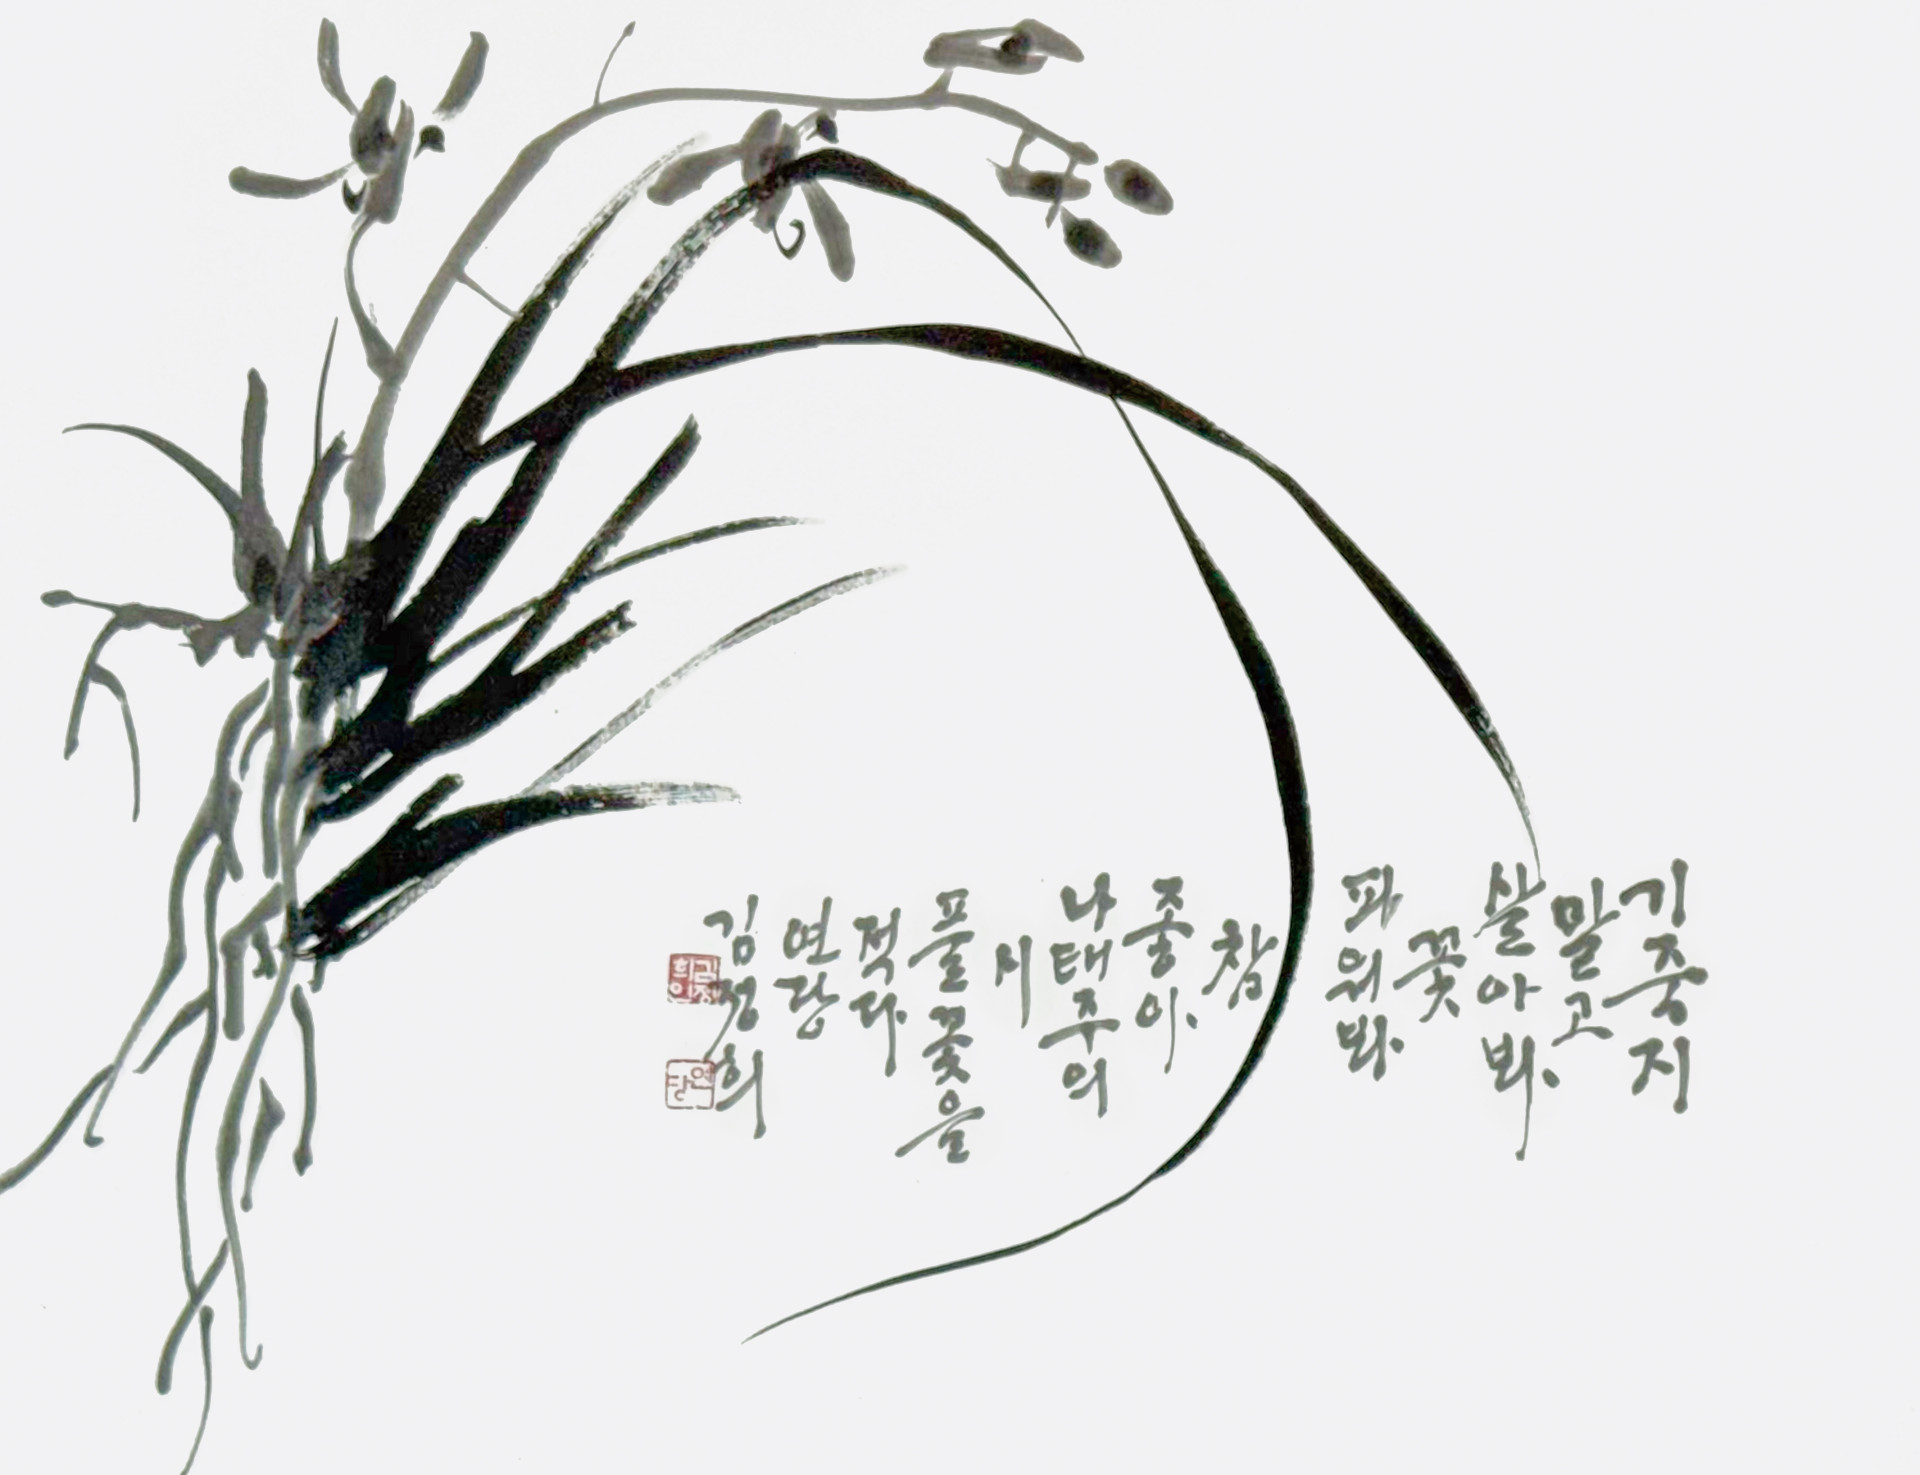 기죽지
말고
살아봐.
꽃
피워봐.
참
좋아.
나태주의
시
풀꽃을
적다
연당
김정희
김정희인
연당